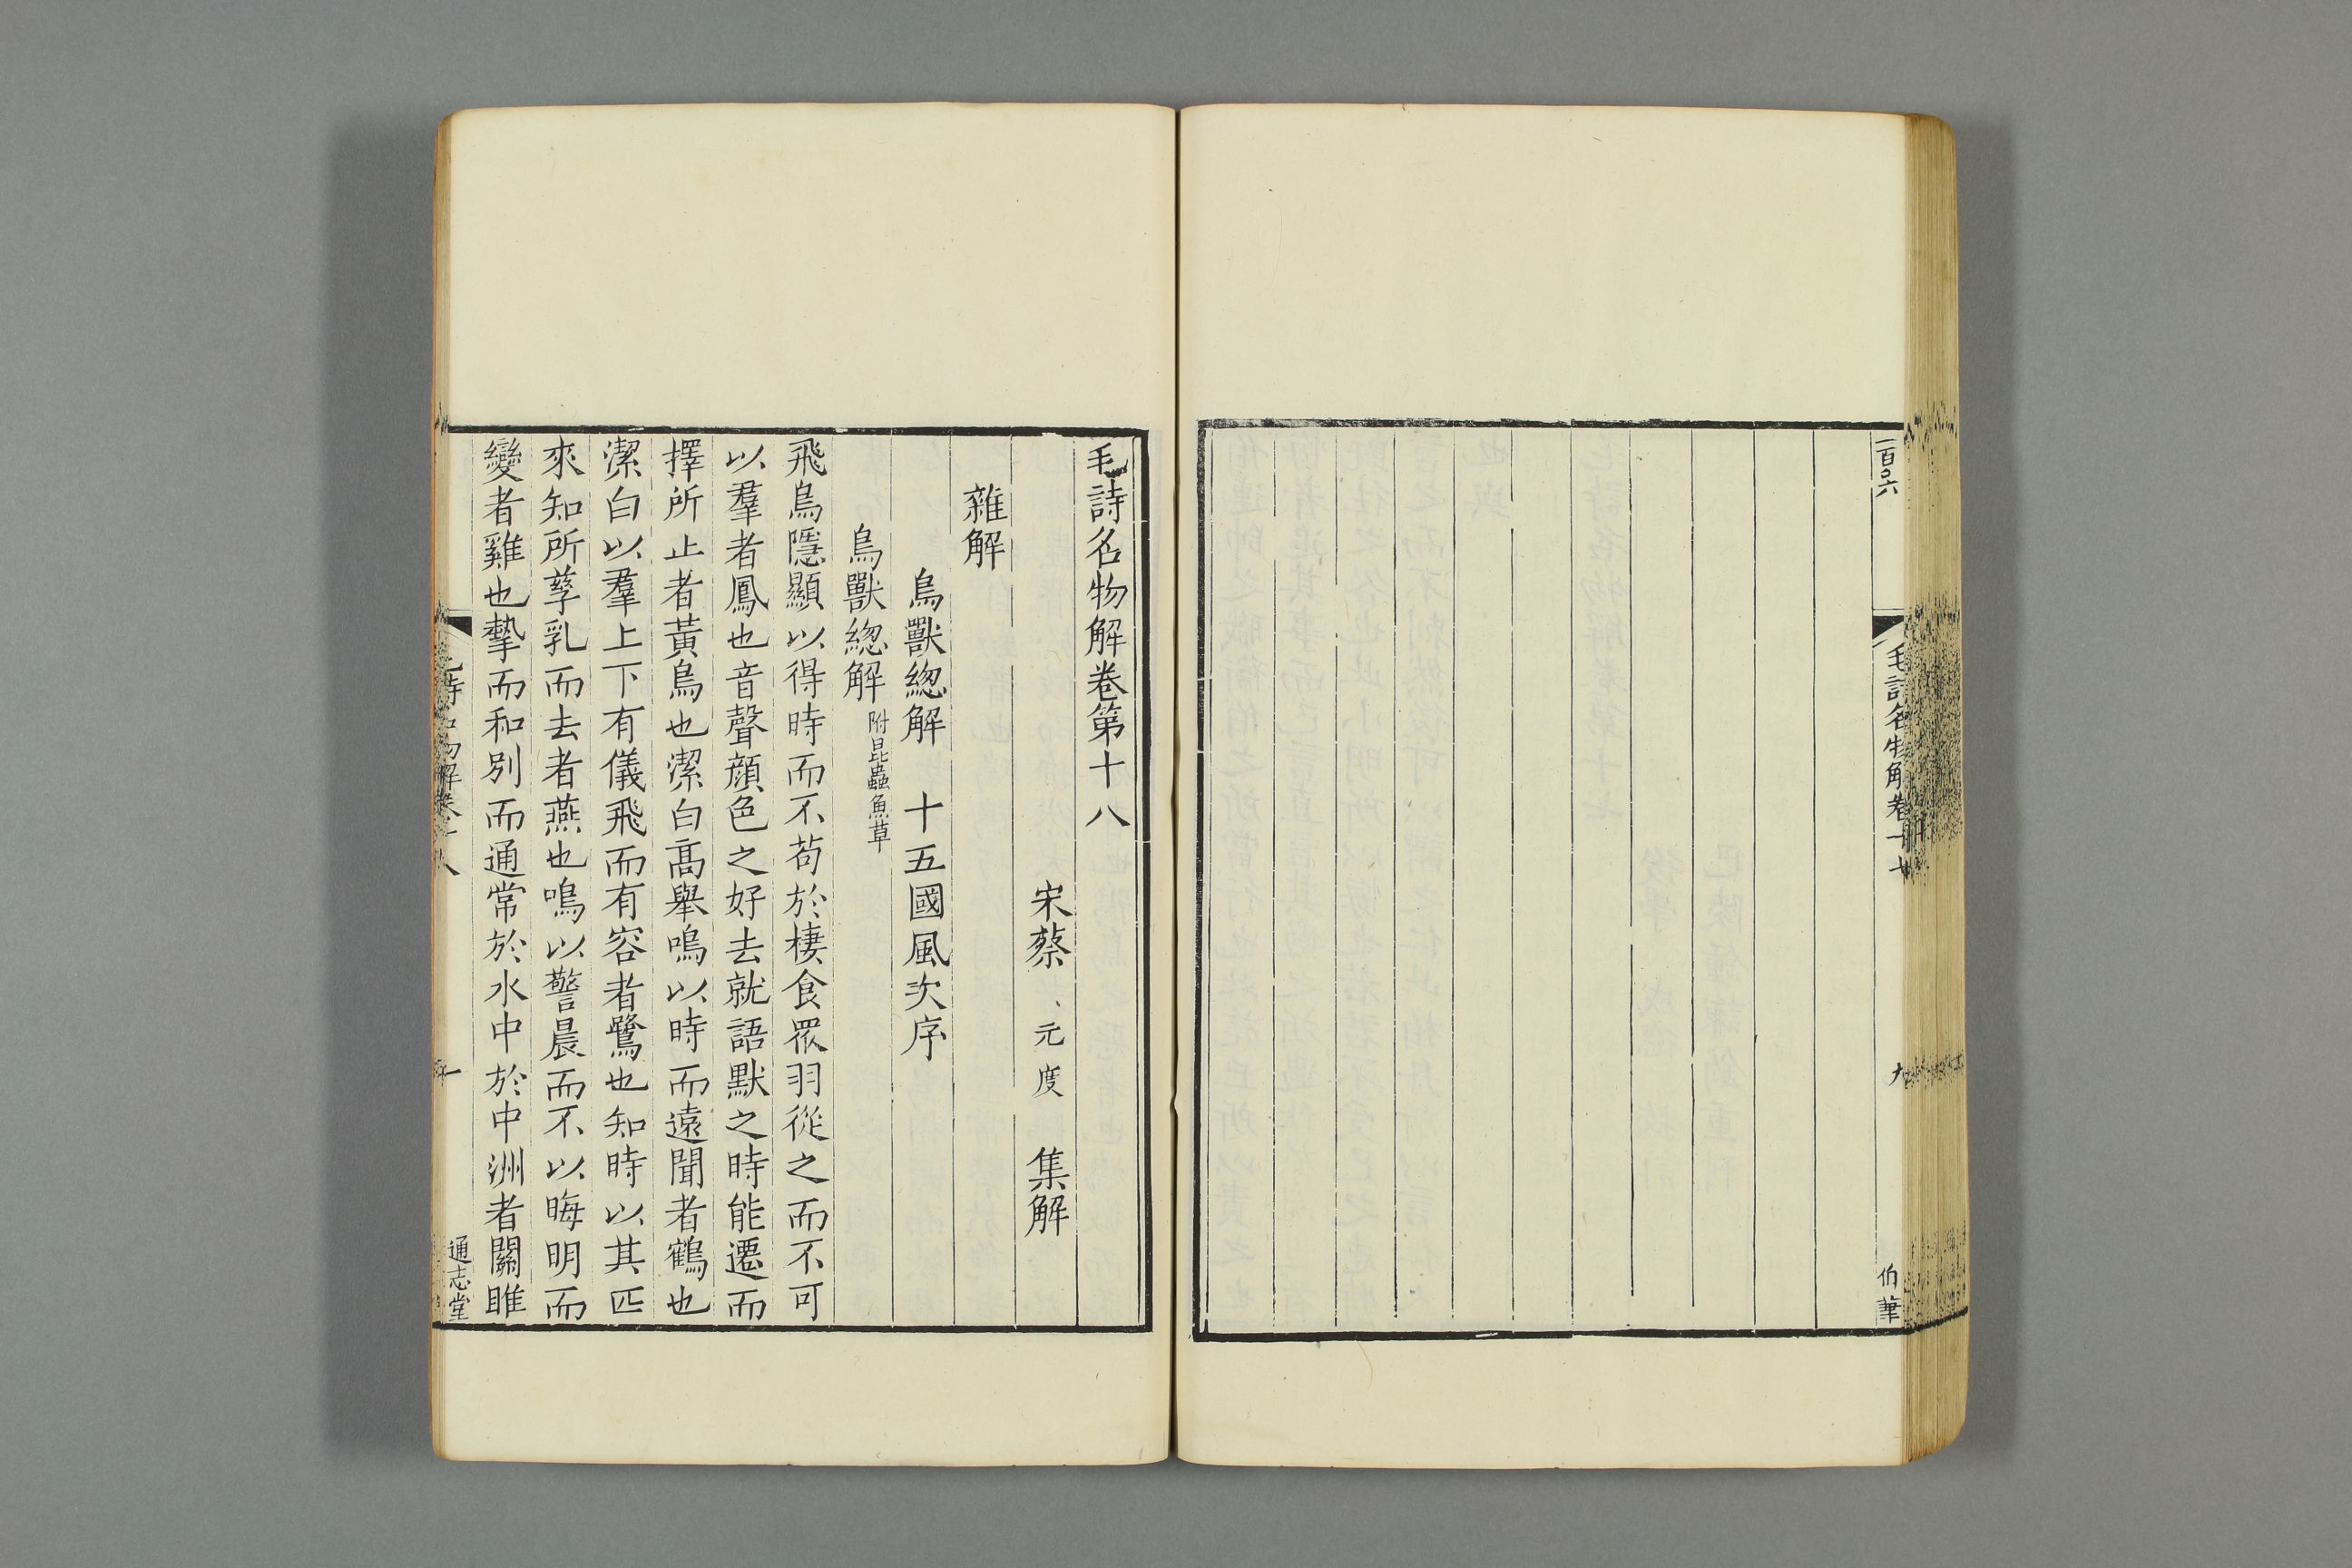 一百〇六
毛詩名物解卷十七
九
伯筆
毛詩名物解卷第十八
宋蔡、元度 集解
雜解
鳥獸緫解 十五國風次序
鳥獸緫解 附昆蟲魚草
飛鳥隱顯以得時而不苟於棲食眾羽從之而不可
以羣者鳳也音聲顔色之好去就語默之時能遷而
擇所止者黃鳥也潔白高舉鳴以時而遠聞者鶴也
潔白以羣上下有儀飛而有容者鷺也知時以其匹
來知所孳乳而去者燕也鳴以警晨而不以晦明而
變者雞也摯而和別而通常於水中於中洲者關雎
毛詩名物解卷十八
一
通志堂